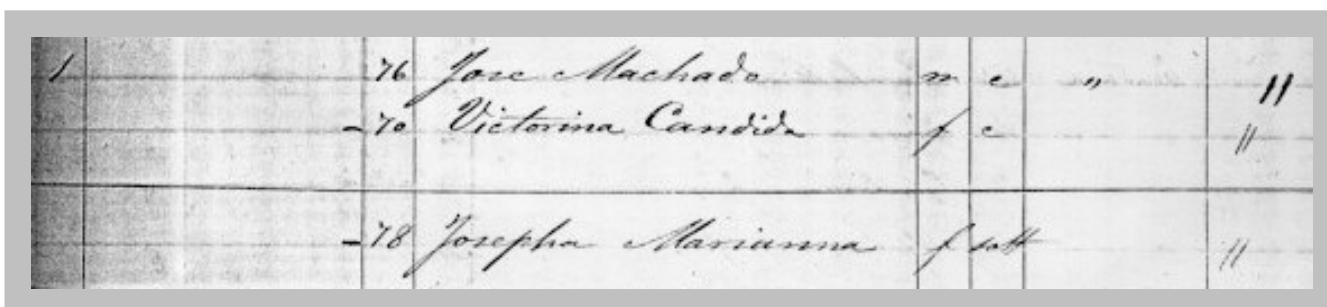 1 76 Jose Machado m c " "
-70 Victorina Candida f c "
-78 Josepha Marianna f solt "